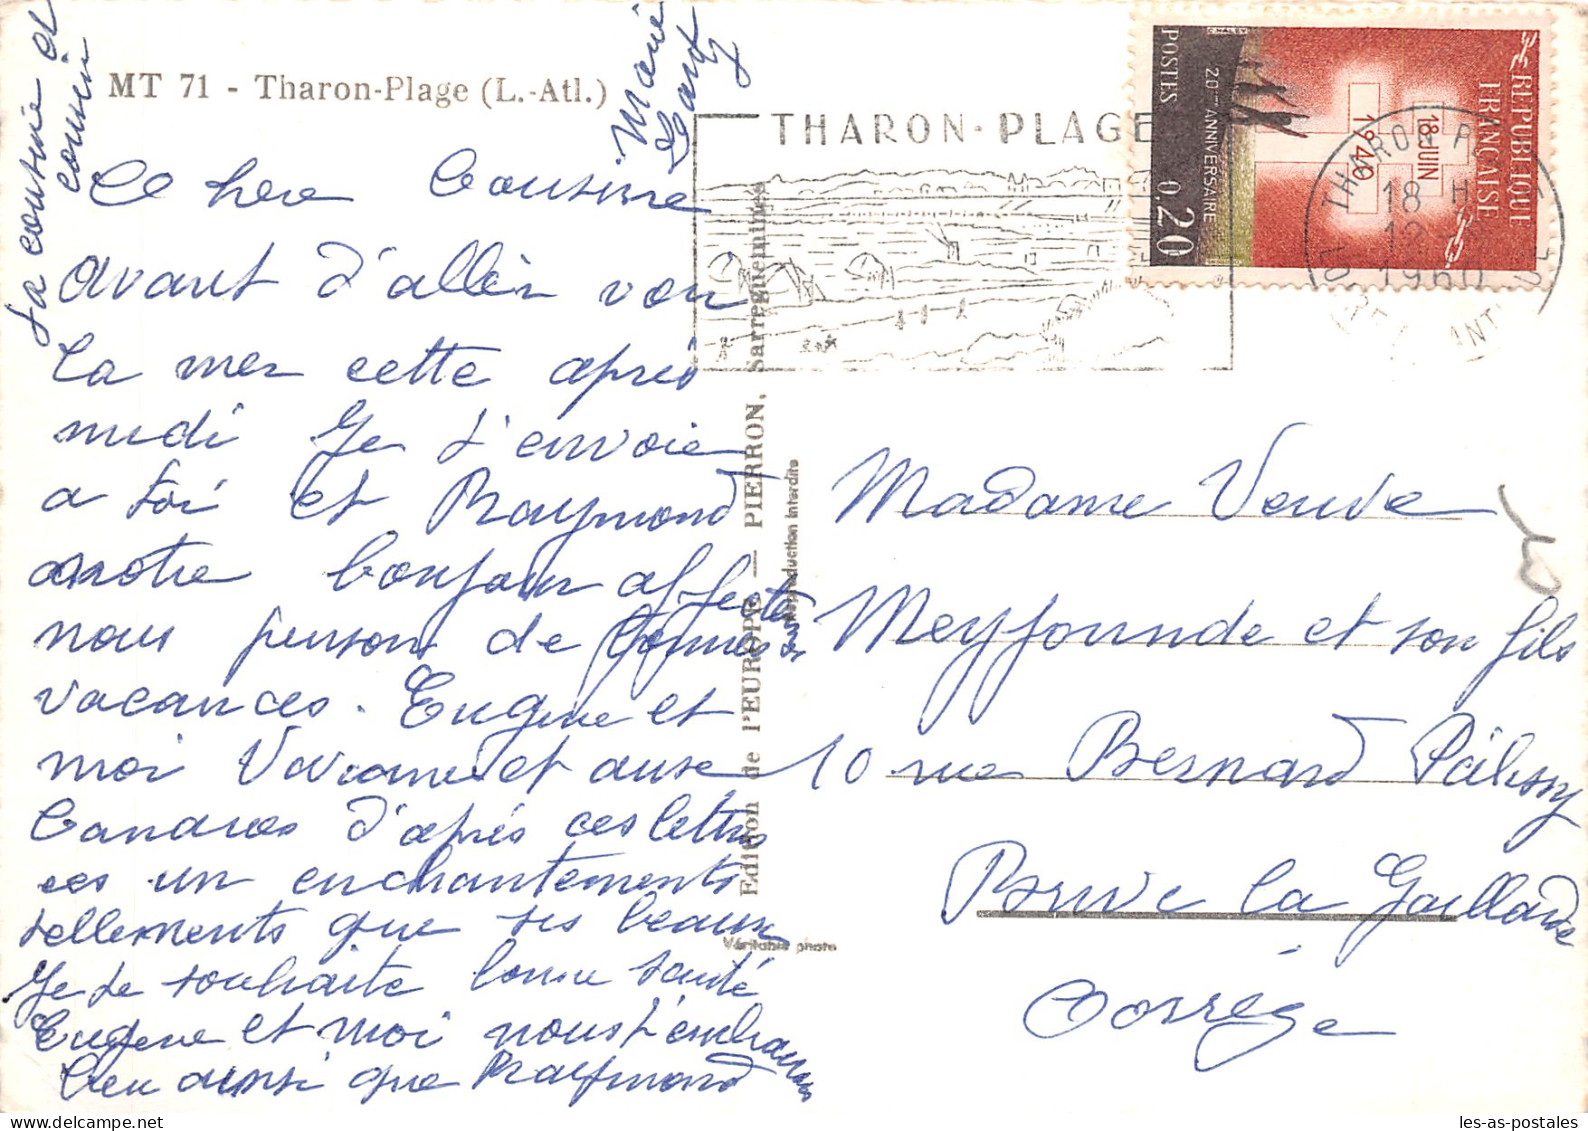 MT 71 - Tharon-Plage (L.-Atl.)
Chere Cousine
avant d'aller voir
la mer cette après
midi Je t'envoie
a toi et Raymond
notre bonjour affectueux
nous pensons de bonnes
vacances. Eugene et
moi
d'après ces lettres
ces un enchantements
tellements que ses beaux
Je te souhaite bonne santé
Eugene et moi nous t'embrassons
bien ainsi que Raymond
Ta cousine et
cousin
Marie
Edition de l'EUROPE — PIERRON, Sarreguemines
Reproduction interdite
Véritable photo
THARON-PLAGE
REPUBLIQUE
FRANÇAISE
18 JUIN
1940
20me ANNIVERSAIRE
POSTES 0.20
THARON PLAGE
18 H
1960
LOIRE ATLANTIQUE
Madame Veuve
Meyjounde et son fils
10 rue Bernard Palissy
Brive la Gaillarde
Corrège
les-as-postales
les-as-postales.com